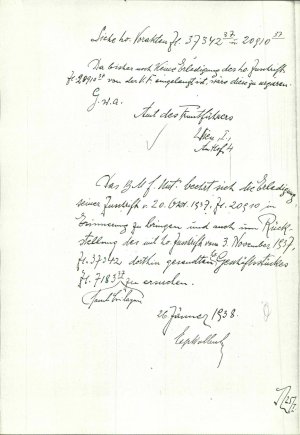 Siehe ho. Vorakten Zl. 37342 37 = 20910 37
Da bisher noch keine Erledigung des ho. Zuschrift
Zl. 20910 37 von der V.F. eingelangt ist, wäre diese zu urgieren.
G.w.a.
Amt des Frontführers
Wien, I.,
Am Hof 4
Das B.M.f. Unt. beehrt sich die Erledigung
seiner Zuschrift v. 20. 1937, Zl. 20910, in
Erinnerung zu bringen und auch um Rück-
stellung des mit ho. Zuschrift vom 3. November 1937,
Zl. 37342 dorthin gesandten Geschäftsstückes
Zl. 7183 37 zu ersuchen.
samt Beilagen
26. Jänner 1938.